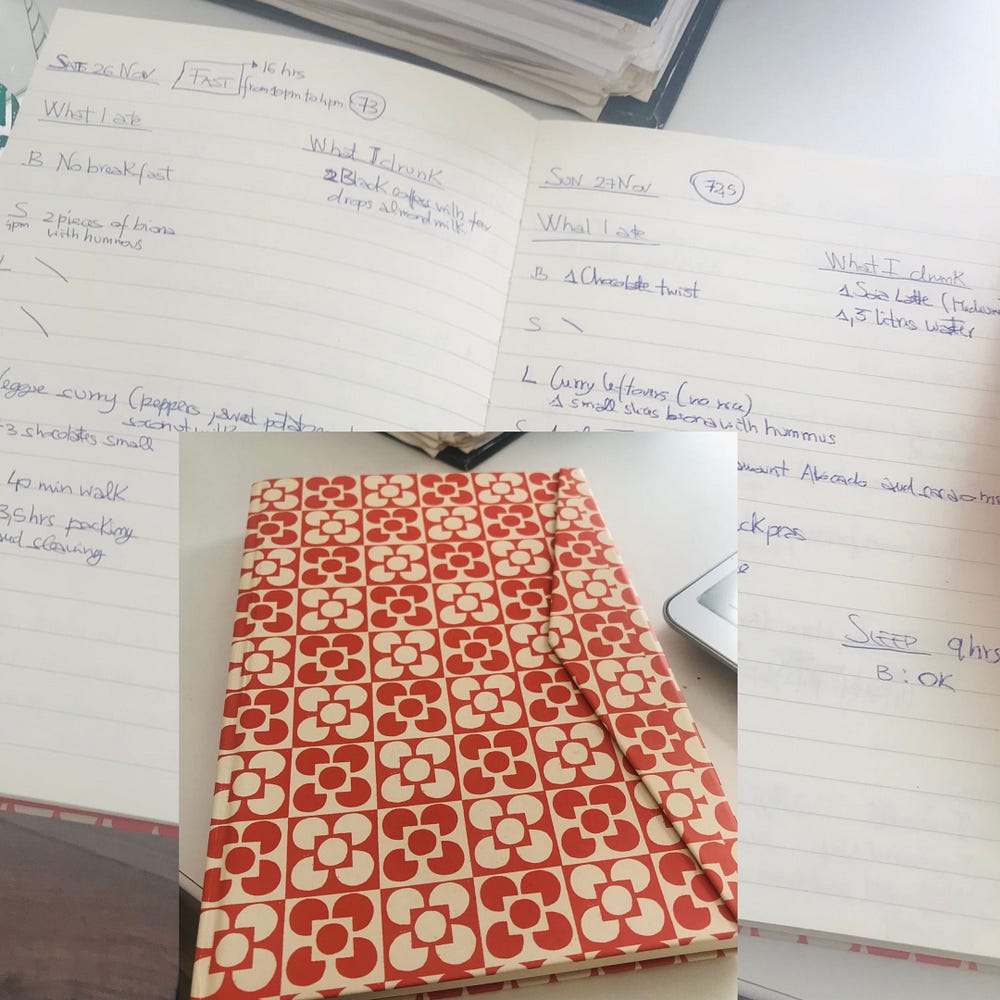 SAT 26 Nov
FAST
16 hrs
from 10pm to 4pm
73
What I ate
B No breakfast
S 4pm 2 pieces of biona
with hummus
What I drunk
2 Black coffees with few
drops almond milk
veggie curry (peppers, sweet potato
3 shocolates small
40 min walk
3,5 hrs packing
and cleaning
SUN 27 Nov
72,5
What I ate
B 1 Chocolate twist
S
L Curry leftovers (no rice)
1 small slice biona with hummus
What I drunk
1 Soia Latte (
1,5 litres water
Avocado and
SLEEP 9hrs
B: OK